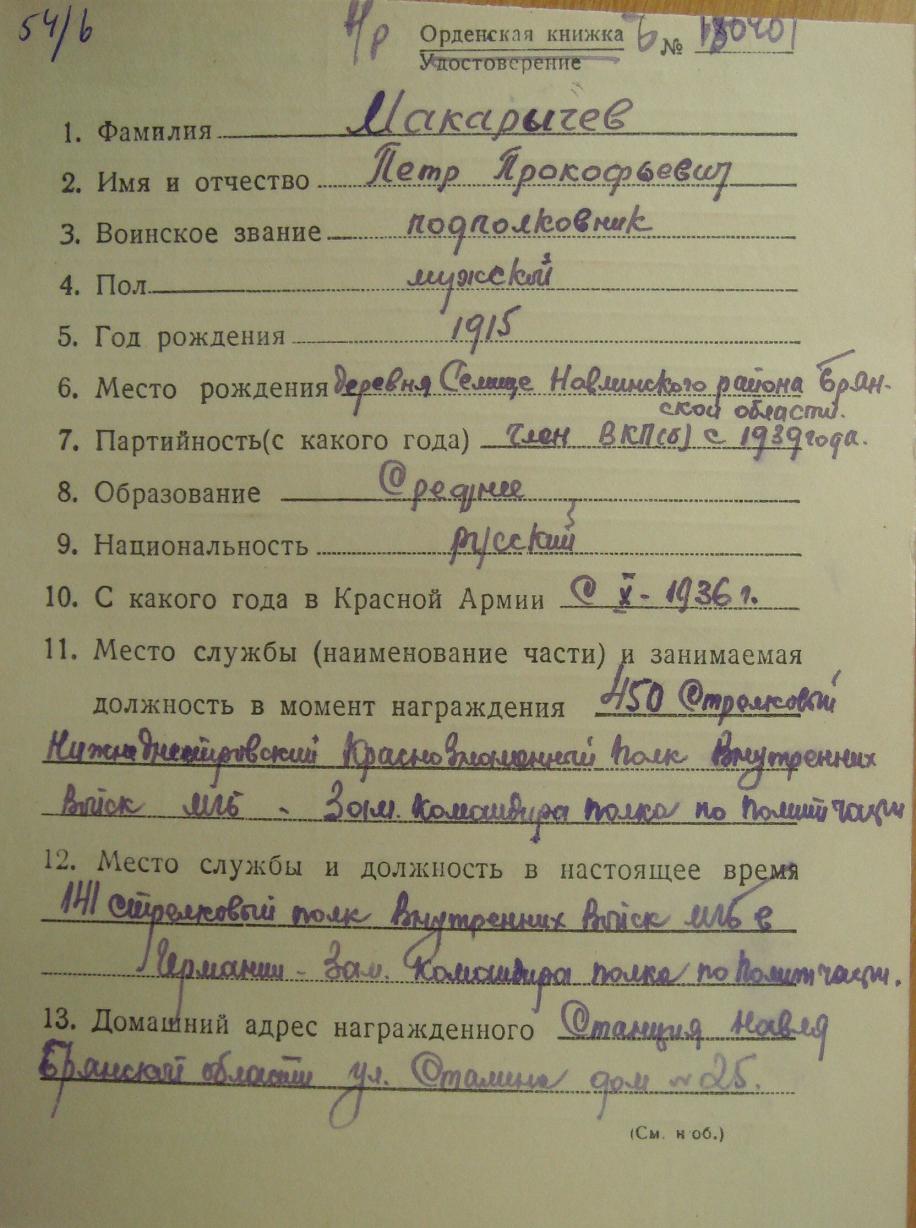 54/6
Орденская книжка
Удостоверение №
1. Фамилия Макарычев
2. Имя и отчество Петр Прокофьевич
3. Воинское звание подполковник
4. Пол мужской
5. Год рождения 1915
6. Место рождения деревня Селище Навлинского района Брян-
ской области.
7. Партийность (с какого года) член ВКП(б) с 1939 года.
8. Образование Среднее
9. Национальность русский
10. С какого года в Красной Армии С X - 1936 г.
11. Место службы (наименование части) и занимаемая
должность в момент награждения 450 Стрелковый
Нижнеднестровский Краснознаменный полк Внутренних
Войск МГБ - Зам. Командира полка по Политчасти
12. Место службы и должность в настоящее время
141 стрелковый полк Внутренних Войск МГБ в
Германии - Зам. Командира полка по Политчасти.
13. Домашний адрес награжденного Станция Навля
Брянской области ул. Сталина дом № 25.
(См. н об.)